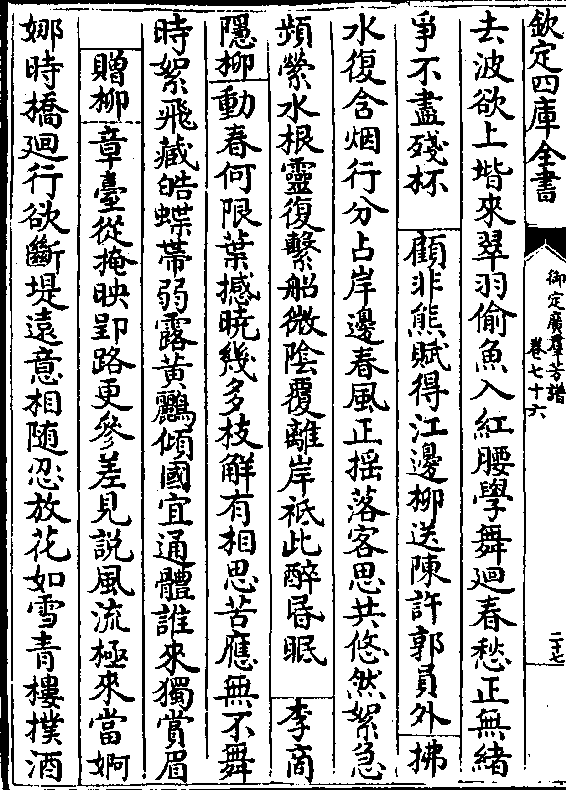 欽定四庫全書
御定廣羣芳譜
卷七十六
二十七
去波欲上堦來翠羽偷魚入紅腰學舞迴春愁正無緒
爭不盡殘杯 顧非熊賦得江邊柳送陳許郭員外 拂
水復含烟行分占岸邊春風正揺落客思共悠然絮急
頻縈水根靈復繫船微陰覆離岸袛此醉昏眠 李商
隱柳 動春何限葉撼曉幾多枝解有相思苦應無不舞
時絮飛藏皓蝶帶弱露黄鸝傾國宜通體誰來獨賞眉
贈柳 章臺從掩映郢路更參差見説風流極來當婀
娜時橋迴行欲斷堤遠意相随忍放花如雪青樓撲酒